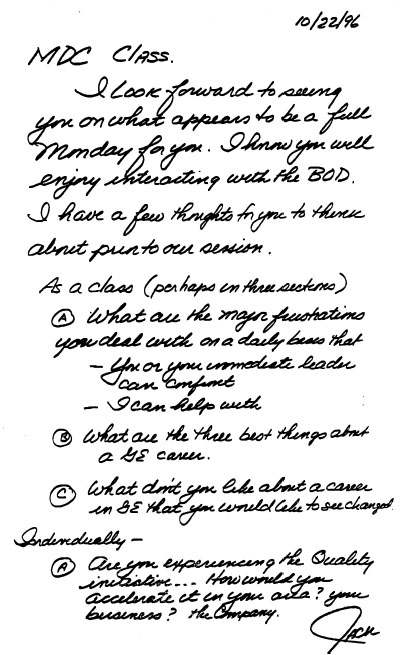 10/22/96
MDC Class.
I look forward to seeing
you on what appears to be a full
Monday for you. I know you will
enjoy interacting with the BOD.
I have a few thoughts for you to think
about prior to our session.
As a class (perhaps in three sections)
(A) What are the major frustrations
you deal with on a daily basis that
- You or your immediate leader
can confront
- I can help with
(B) What are the three best things about
a GE career.
(C) What don't you like about a career
in GE that you would like to see changed.
Individually -
(A) Are you experiencing the Quality
initiative... How would you
accelerate it in your area? your
business? the Company.
Jack